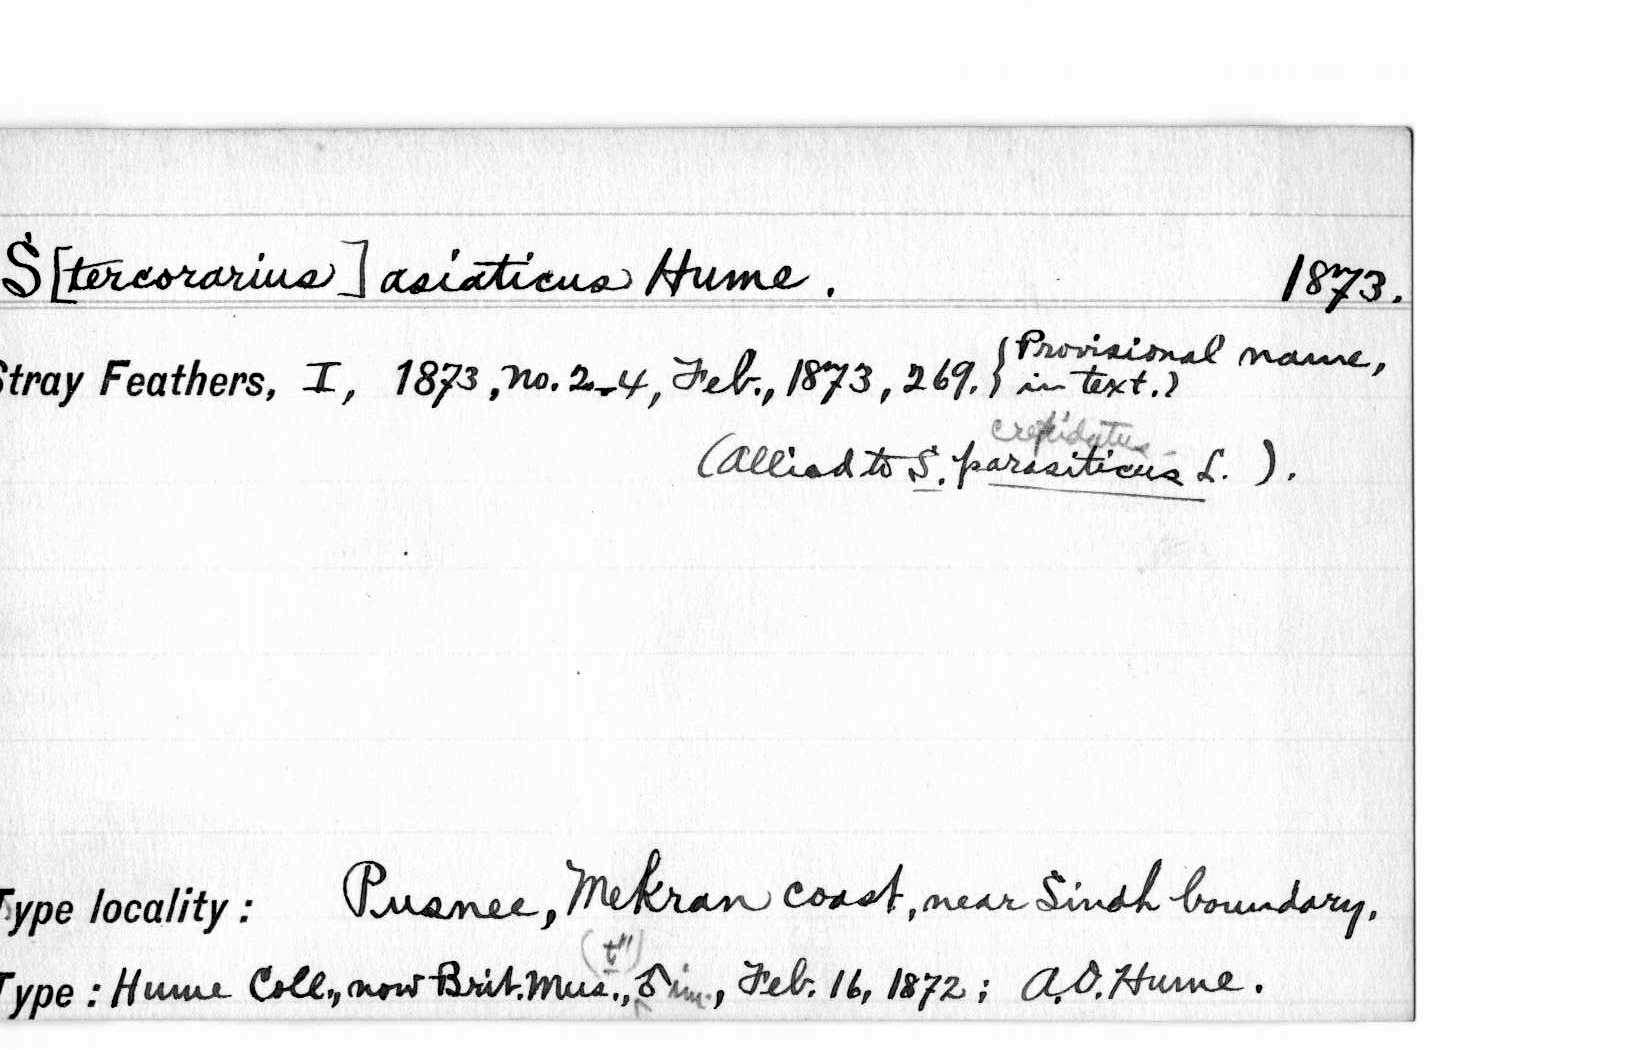 S[tercorarius] asiaticus Hume. 1873.
Stray Feathers, I, 1873, no. 2-4, Feb., 1873, 269. {Provisional name,
in text.}
crepidatus
(Allied to S. parasiticus L. ).
Type locality: Pusnee, Mekran coast, near Sindh boundary.
(t")
Type: Hume Coll., now Brit. Mus., im., Feb. 16, 1872; A.O. Hume.